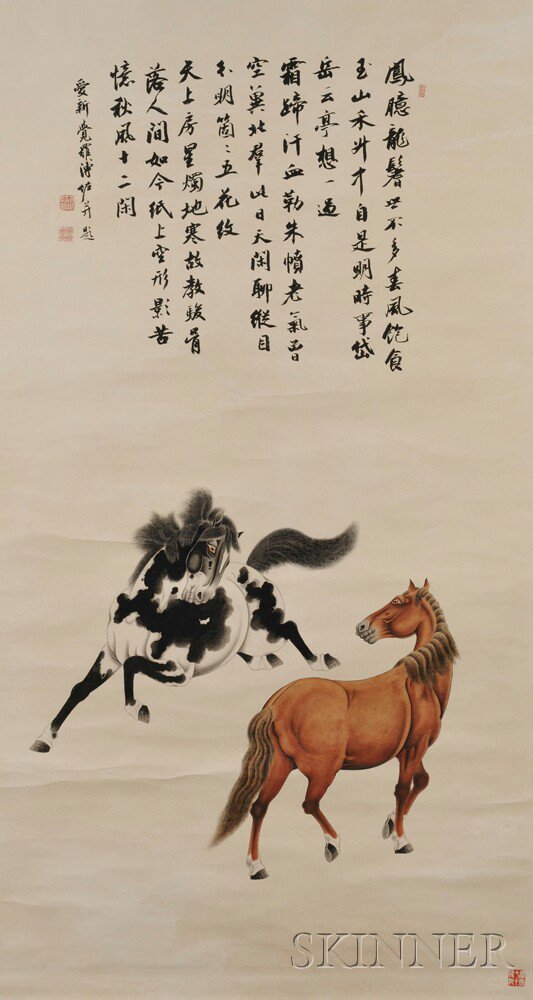 鳳臆龍鬐世不多春風飽食
玉山禾升才自是明時事岱
岳云亭想一過
霜蹄汗血勒朱幩老氣曾
空冀北羣此日天閑聊縱目
分明箇〻五花紋
天上房星燭地寒故教駿骨
落人間如今紙上空形影苦
憶秋風十二閑
愛新覺羅溥佐并題
SKINNER